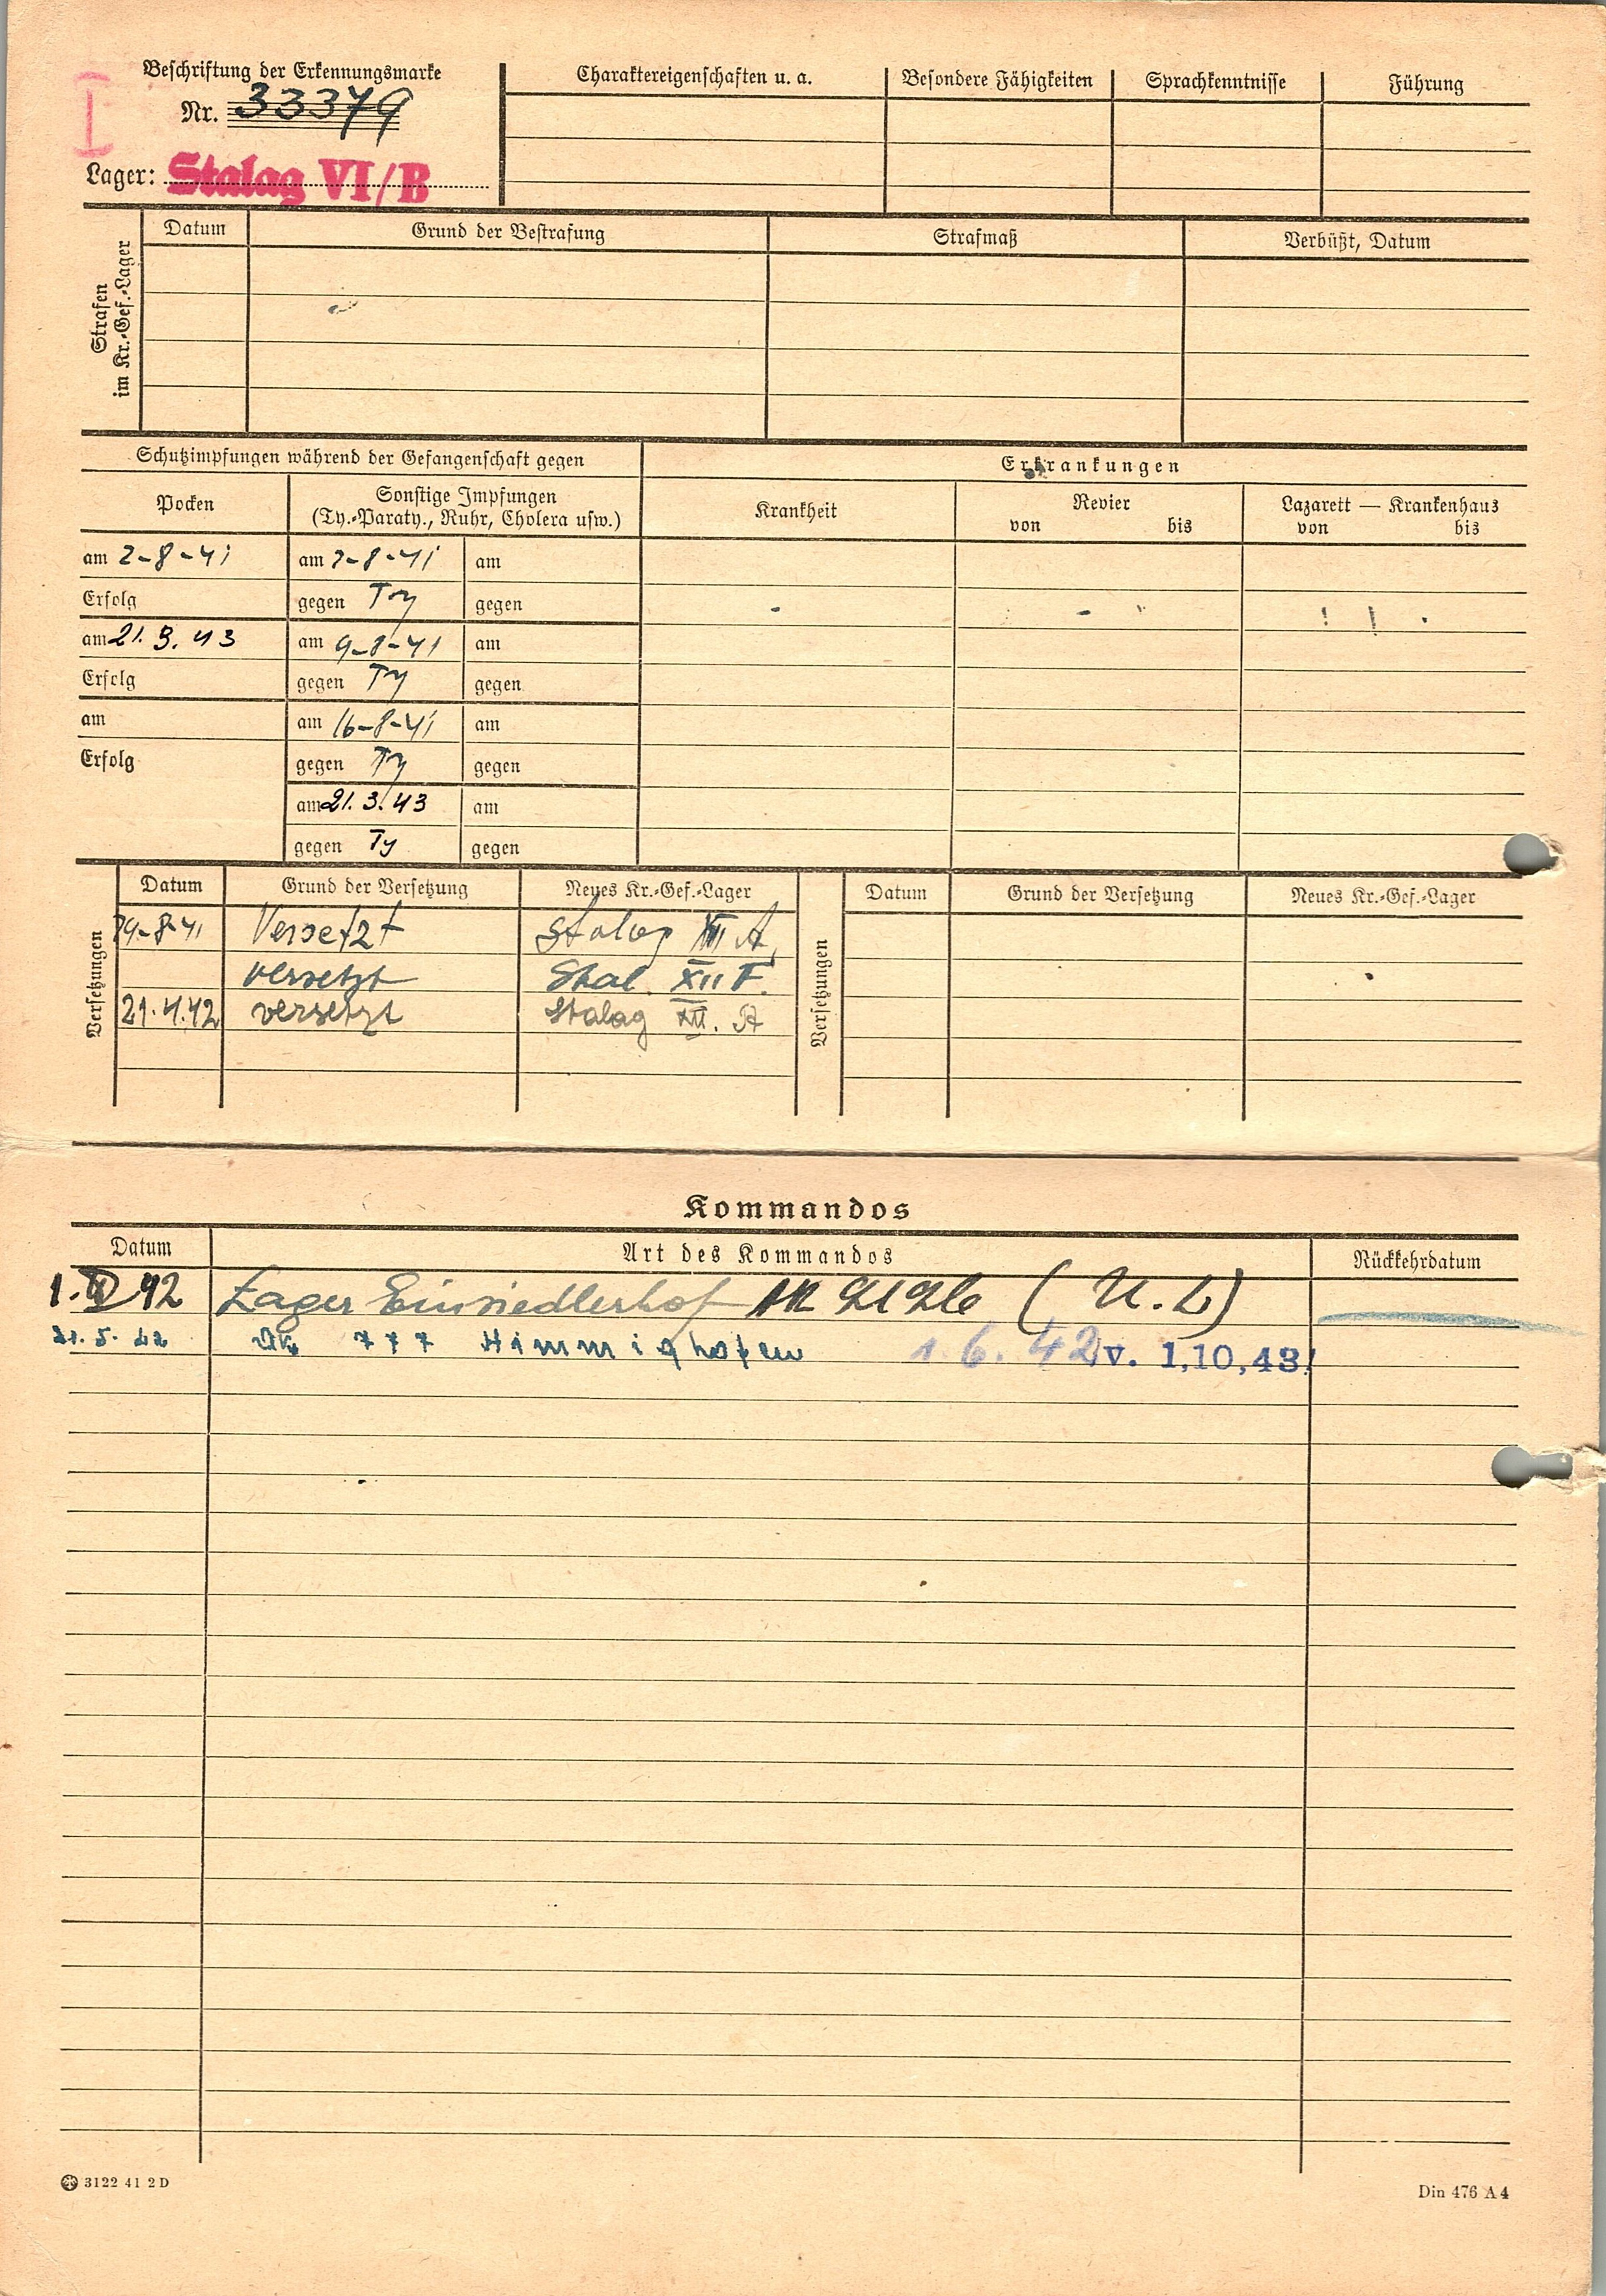 Beschriftung der Erkennungsmarke
Nr. 33379
Lager: Stalag VI/B
Charaktereigenschaften u. a. Besondere Fähigkeiten Sprachkenntnisse Führung
Strafen
im Kr.-Gef.-Lager
Datum Grund der Bestrafung Strafmaß Verbüßt, Datum
Schutzimpfungen während der Gefangenschaft gegen
Erkrankungen
Pocken
Sonstige Impfungen
(Ty.-Paraty., Ruhr, Cholera usw.)
Krankheit
Revier
von bis
Lazarett — Krankenhaus
von bis
am 2-8-41 am 2-8-41 am
Erfolg gegen Ty gegen
am 21. 3. 43 am 9-8-41 am
Erfolg gegen Ty gegen
am am 16-8-41 am
Erfolg gegen Ty gegen
am 21. 3. 43 am
gegen Ty gegen
Versetzungen
Datum Grund der Versetzung Neues Kr.-Gef.-Lager
-8-41 Versetzt Stalag A
versetzt Stal. XII F.
21.4.42 versetzt Stalag XII. A
Versetzungen
Datum Grund der Versetzung Neues Kr.-Gef.-Lager
Kommandos
Datum Art des Kommandos Rückkehrdatum
1. 42 Lager Einsiedlerhof (U. L)
21. 5. 42 AK 777 Himmighofen 1. 6. 42 v. 1,10,43!
3122 41 2 D
Din 476 A 4